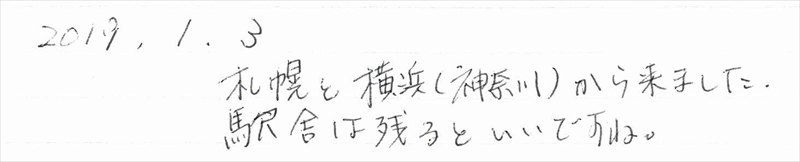 2019. 1. 3
札幌と横浜(神奈川)から来ました.
駅舎は残るといいですね。